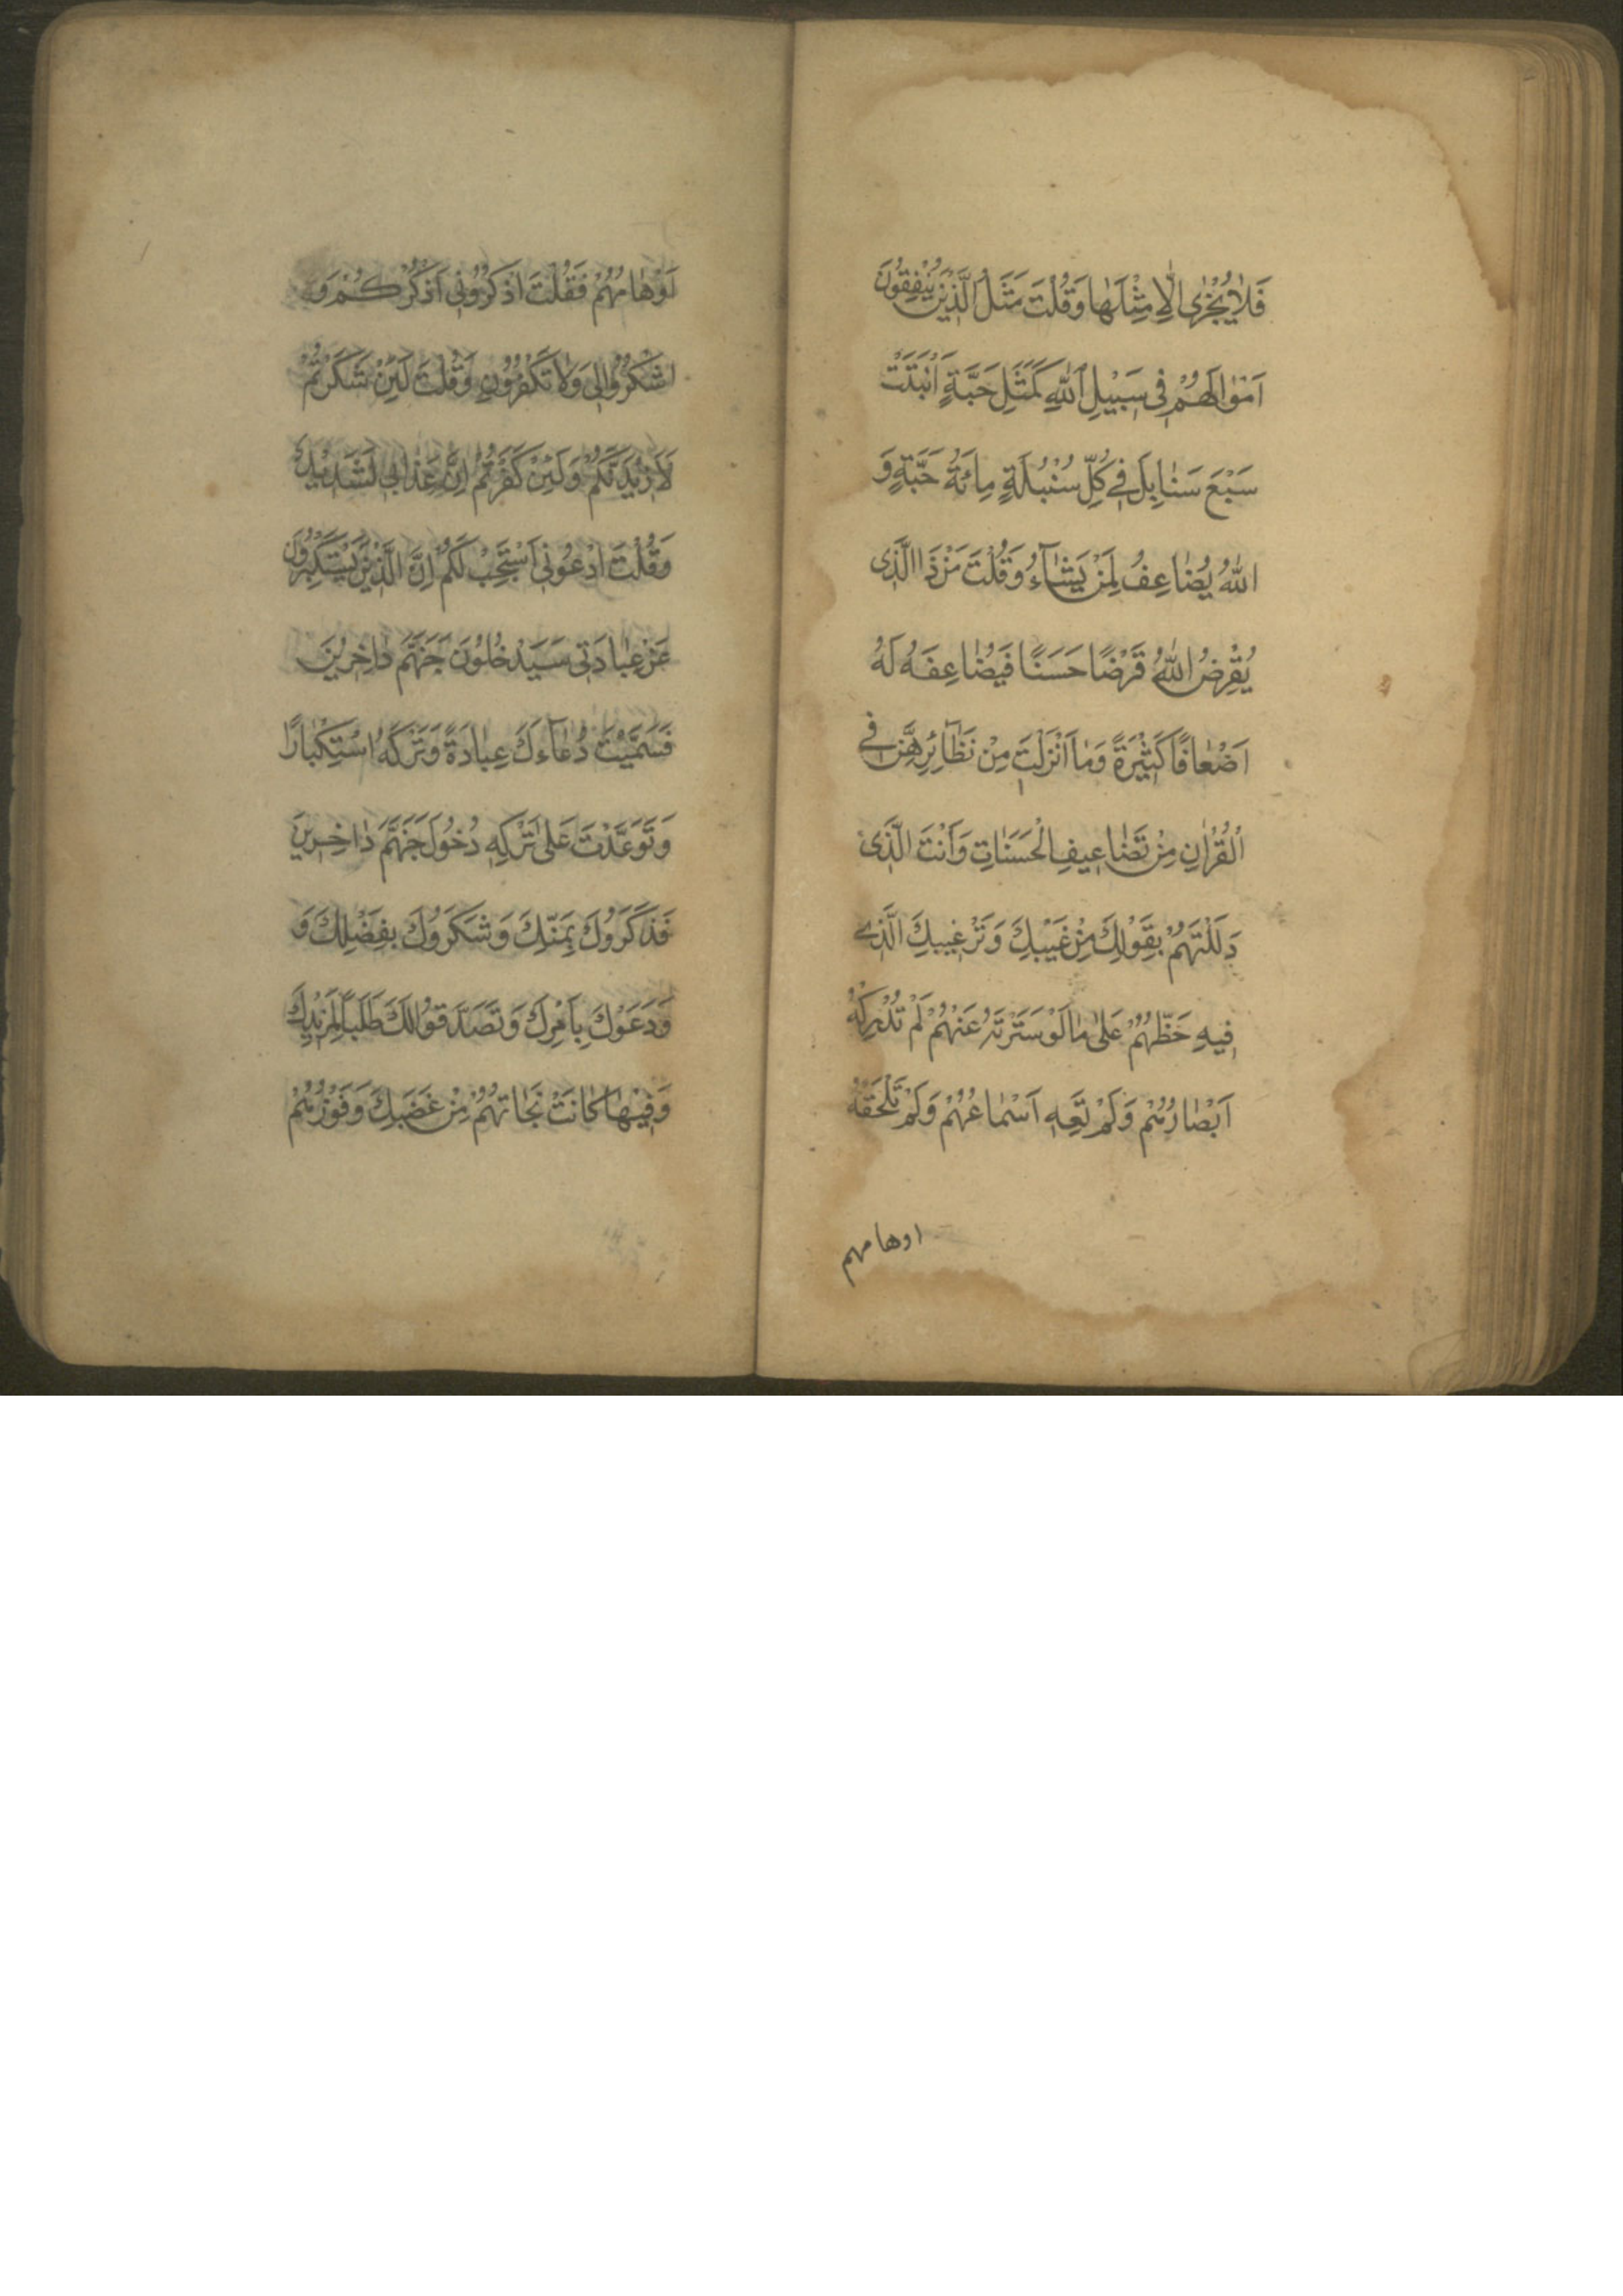 فَلَا يُجْزٰى اِلَّا مِثْلَهَا وَقُلْتَ مَثَلُ الَّذِيْنَ يُنْفِقُونَ
اَمْوَالَهُمْ فِى سَبِيْلِ اللّٰهِ كَمَثَلِ حَبَّةٍ اَنْبَتَتْ
سَبْعَ سَنَابِلَ فِى كُلِّ سُنْبُلَةٍ مِائَةُ حَبَّةٍ وَ
اللّٰهُ يُضَاعِفُ لِمَنْ يَشَآءُ وَقُلْتَ مَنْ ذَا الَّذِى
يُقْرِضُ اللّٰهَ قَرْضًا حَسَنًا فَيُضَاعِفَهُ لَهُ
اَضْعَافًا كَثِيْرَةً وَمَا اَنْزَلْتَ مِنْ نَظَآئِرِهِنَّ فِى
الْقُرْاٰنِ مِنْ تَضَاعِيفِ الْحَسَنَاتِ وَاَنْتَ الَّذِى
دَلَلْتَهُمْ بِقَوْلِكَ مِنْ غَيْبِكَ وَتَرْغِيبِكَ الَّذِى
فِيهِ حَظُّهُمْ عَلٰى مَا لَوْ سَتَرْتَهُ عَنْهُمْ لَمْ تُدْرِكْهُ
اَبْصَارُهُمْ وَلَمْ تَعِهِ اَسْمَاعُهُمْ وَلَمْ تَلْحَقْهُ
اوهامهم
اَوْهَامُهُمْ فَقُلْتَ اذْكُرُونِى اَذْكُرْكُمْ وَ
اشْكُرُوا لِى وَلَا تَكْفُرُوْنِ وَقُلْتَ لَئِنْ شَكَرْتُمْ
لَاَزِيْدَنَّكُمْ وَلَئِنْ كَفَرْتُمْ اِنَّ عَذَابِى لَشَدِيْدٌ
وَقُلْتَ ادْعُونِى اَسْتَجِبْ لَكُمْ اِنَّ الَّذِيْنَ يَسْتَكْبِرُونَ
عَنْ عِبَادَتِى سَيَدْخُلُوْنَ جَهَنَّمَ دَاخِرِيْنَ
فَسَمَّيْتَ دُعَآءَكَ عِبَادَةً وَتَرْكَهُ اسْتِكْبَارًا
وَتَوَعَّدْتَ عَلٰى تَرْكِهِ دُخُولَ جَهَنَّمَ دَاخِرِينَ
فَذَكَرُوْكَ بِمَنِّكَ وَشَكَرُوكَ بِفَضْلِكَ وَ
وَدَعَوْكَ بِاَمْرِكَ وَتَصَدَّقُوا لَكَ طَلَبًا لِمَزِيْدِكَ
وَفِيْهَا كَانَتْ نَجَاتُهُمْ مِنْ غَضَبِكَ وَفَوْزُهُمْ